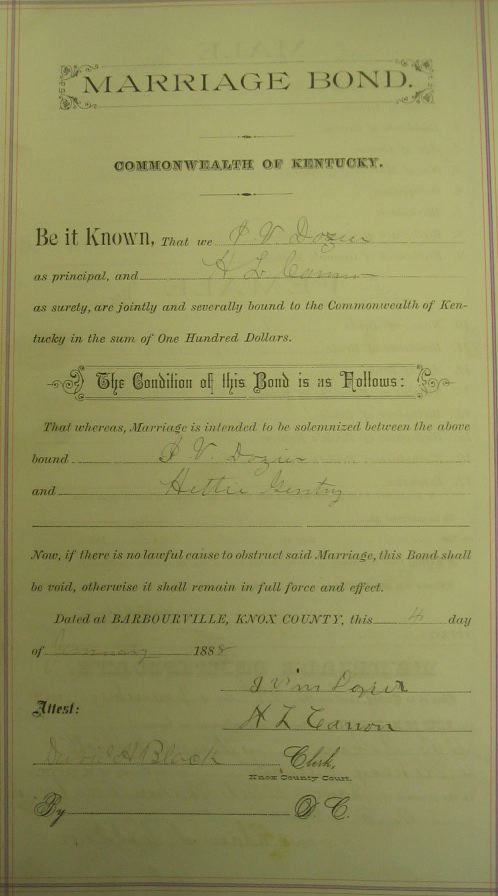 MARRIAGE BOND.
COMMONWEALTH OF KENTUCKY.
Be it Known, That we J. V. Dozier
as principal, and H L Cannon
as surety, are jointly and severally bound to the Commonwealth of Ken-
tucky in the sum of One Hundred Dollars.
The Condition of this Bond is as Follows:
That whereas, Marriage is intended to be solemnized between the above
bound J V. Dozier
and Hettie Gentry
Now, if there is no lawful cause to obstruct said Marriage, this Bond shall
be void, otherwise it shall remain in full force and effect.
Dated at BARBOURVILLE, KNOX COUNTY, this 4 day
of January 1888
Dozier
Attest: H L Cannon
David H Black Clerk,
Knox County Court.
By D. C.